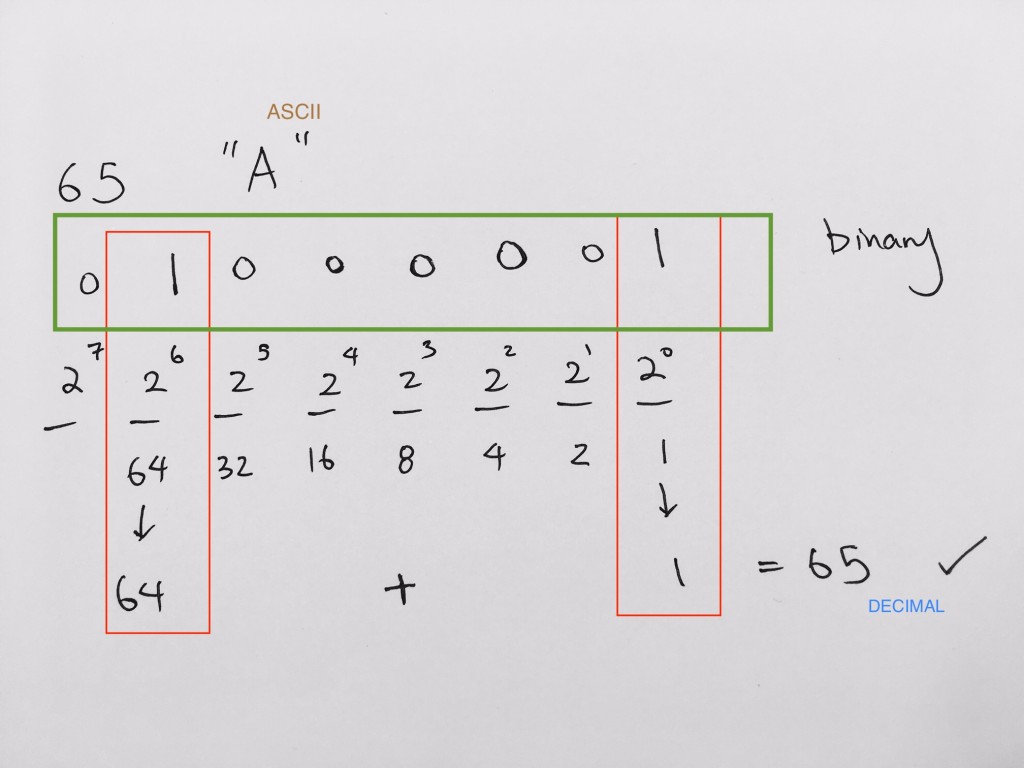 ASCII
65 "A"
0 1 0 0 0 0 0 1 binary
2⁷ 2⁶ 2⁵ 2⁴ 2³ 2² 2¹ 2⁰
64 32 16 8 4 2 1
↓ ↓
64 + 1 = 65 ✓
DECIMAL